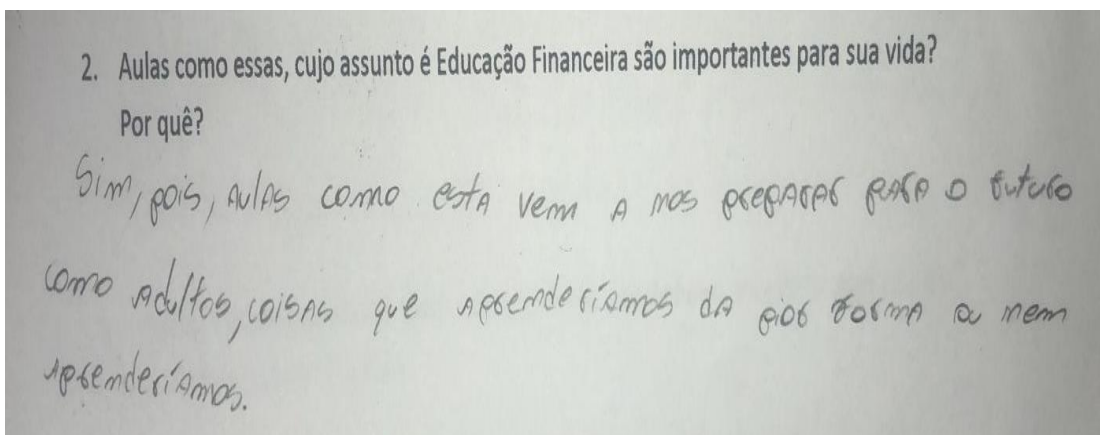 2. Aulas como essas, cujo assunto é Educação Financeira são importantes para sua vida?
Por quê?
Sim, pois, aulas como esta vem a nos preparar para o futuro
como adultos, coisas que aprenderíamos da pior forma ou nem
aprenderíamos.